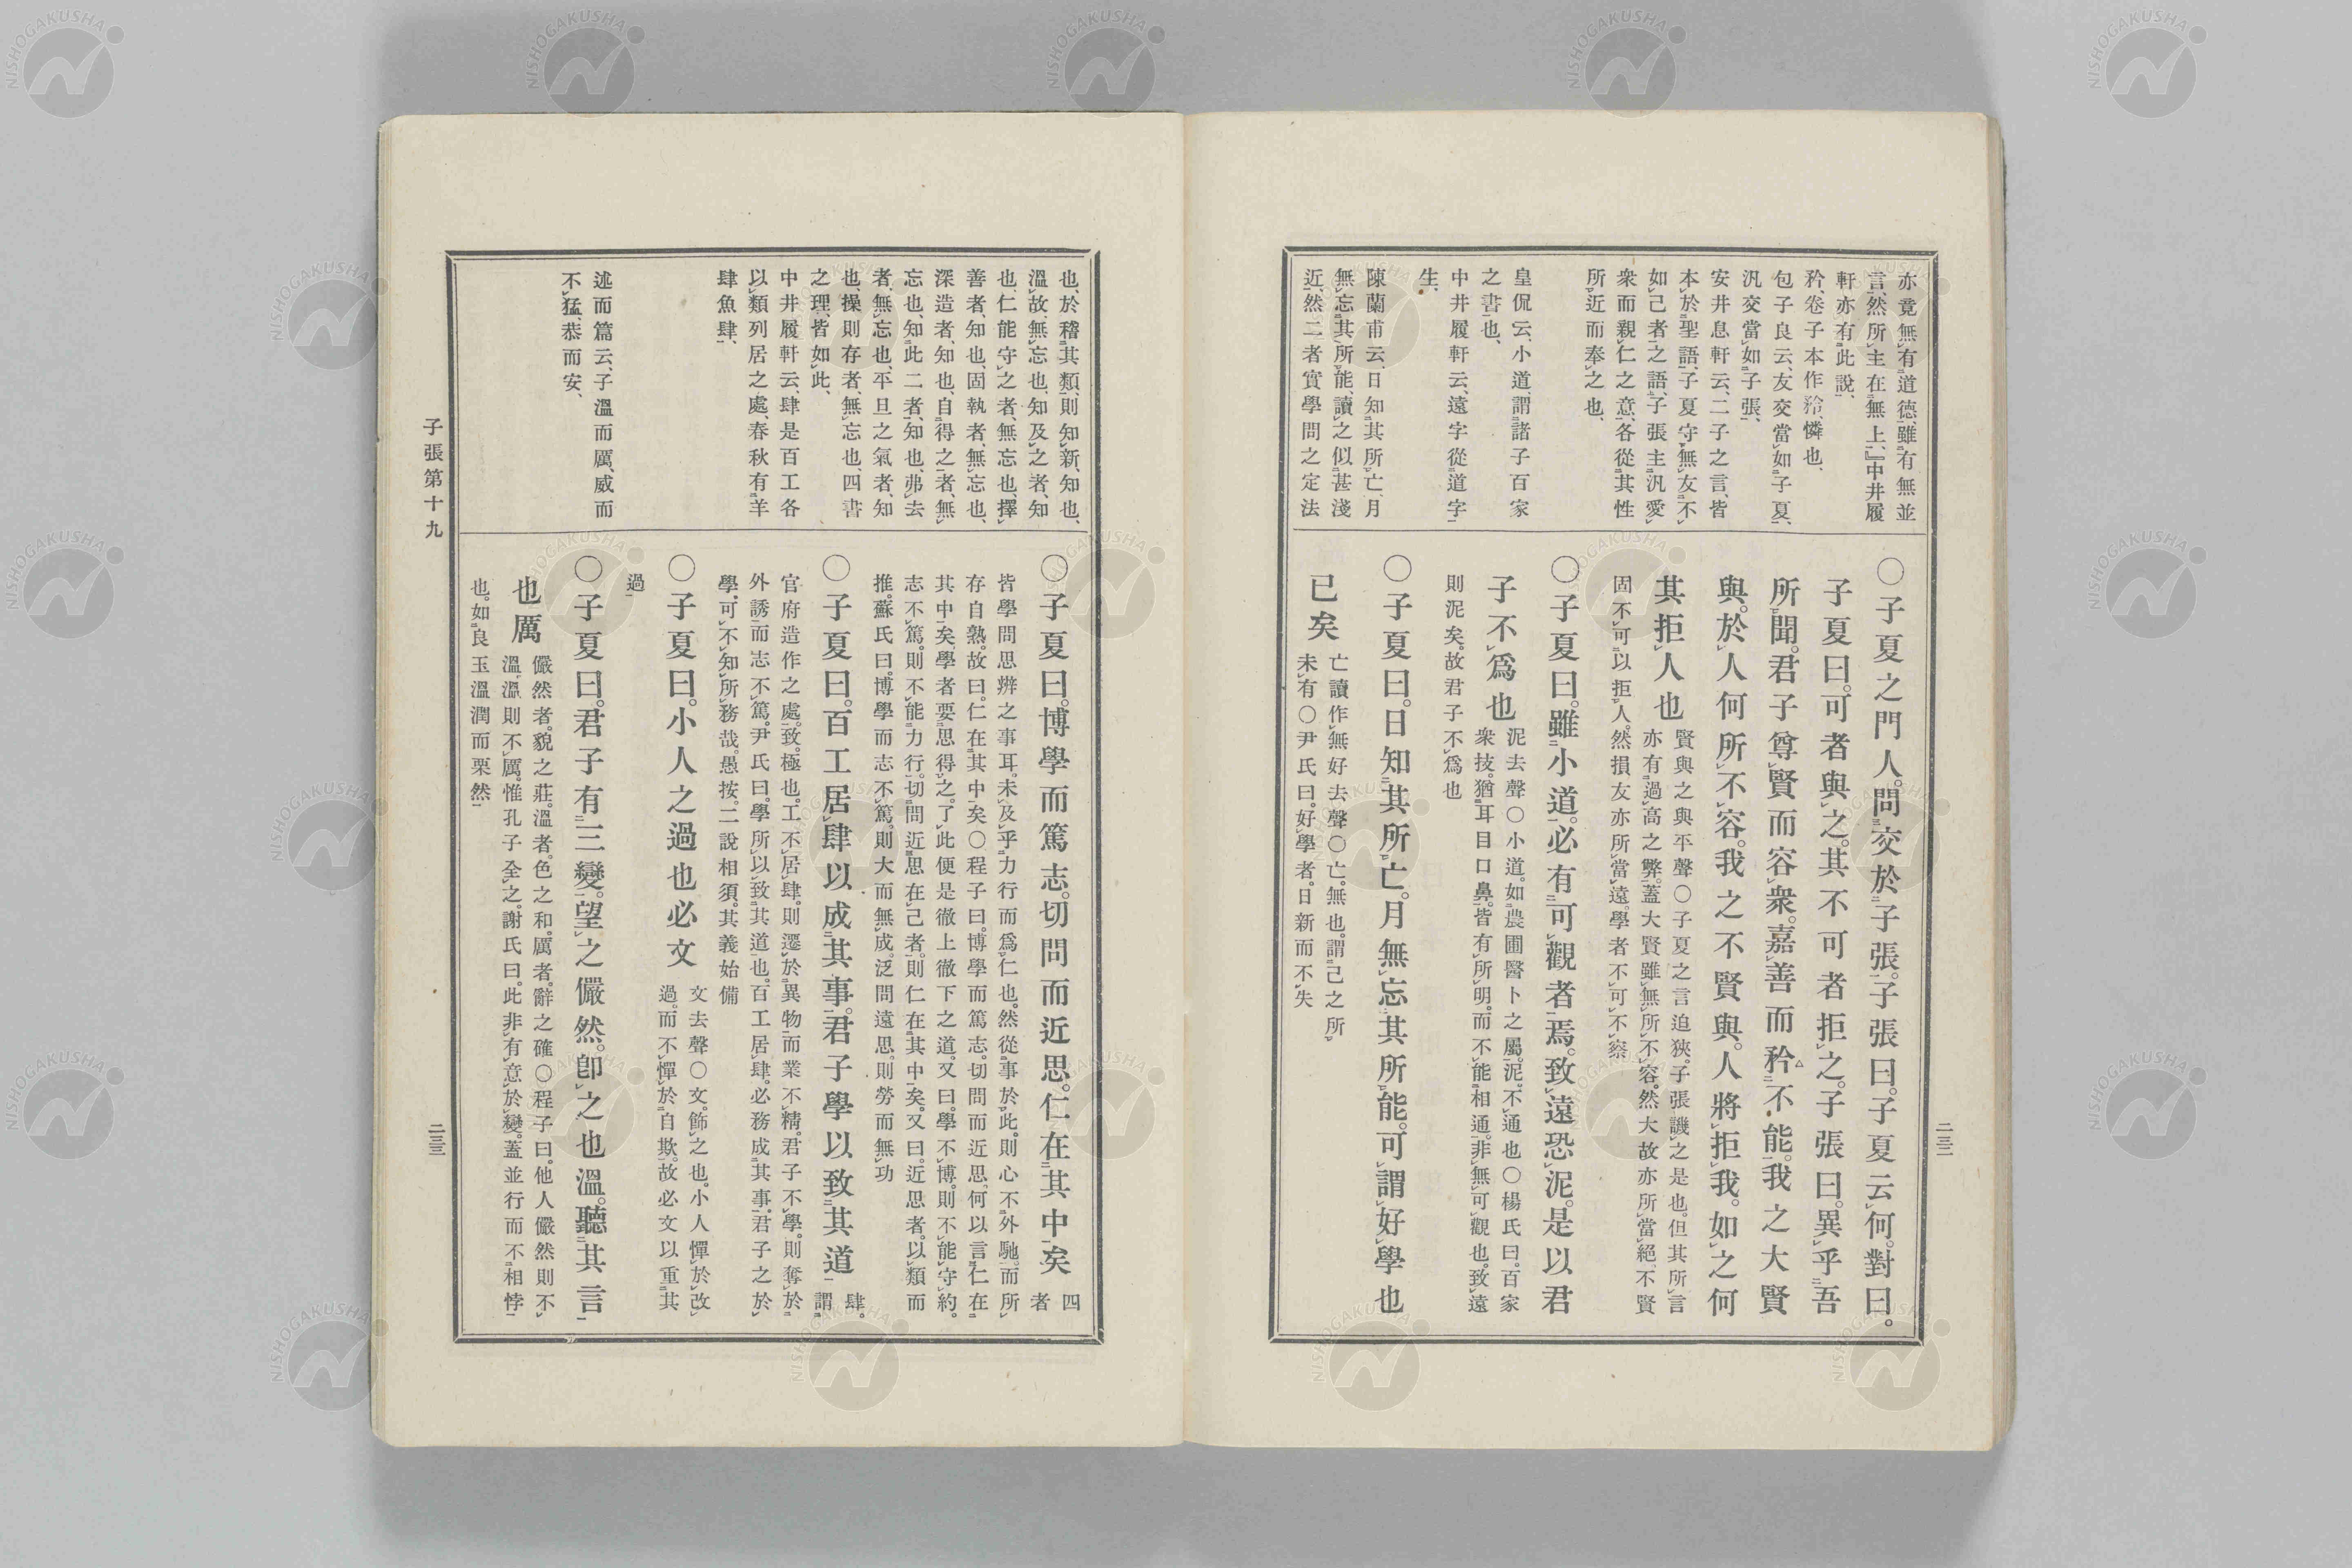 亦竟無有道德、雖有無並
言、然所主在無上、』中井履
軒亦有此說、
矜、卷子本作矝、憐也、
包子良云、友交當如子夏、
汎交當如子張、
安井息軒云、二子之言、皆
本於聖語、子夏守無友不
如己者之語、子張主汎愛
衆而親仁之意、各從其性
所近而奉之也、
皇侃云、小道、謂諸子百家
之書也、
中井履軒云、遠字從道字
生、
陳蘭甫云、日知其所亡、月
無忘其所能、讀之似甚淺
近、然二者實學問之定法
〇子夏之門人。問交於子張。子張曰。子夏云何。對曰。
子夏曰。可者與之。其不可者拒之。子張曰。異乎吾
所聞。君子尊賢而容衆。嘉善而矜不能。我之大賢
與。於人何所不容。我之不賢與。人將拒我。如之何
其拒人也
賢與之與平聲〇子夏之言迫狹。子張譏之是也。但其所言
亦有過高之弊。蓋大賢雖無所不容。然大故亦所當絕。不賢
固不可以拒人。然損友亦所當遠。學者不可不察
〇子夏曰。雖小道。必有可觀者焉。致遠恐泥。是以君
子不爲也
泥去聲〇小道。如農圃醫卜之屬。泥。不通也〇楊氏曰。百家
衆技。猶耳目口鼻。皆有所明。而不能相通。非無可觀也。致遠
則泥矣。故君子不爲也
〇子夏曰。日知其所亡。月無忘其所能。可謂好學也
已矣
亡讀作無好去聲〇亡。無也。謂己之所
未有〇尹氏曰。好學者。日新而不失
二三二
也、於稽其類、則知新、知也、
溫故、無忘也、知及之者、知
也、仁能守之者、無忘也、擇
善者、知也、固執者、無忘也、
深造者、知也、自得之者、無
忘也、知此二者、知也、弗去
者、無忘也、平旦之氣者、知
也、操則存者、無忘也、四書
之理、皆如此、
中井履軒云、肆是百工各
以類列居之處、春秋有羊
肆魚肆、
述而篇云、子溫而厲、威而
不猛、恭而安、
〇子夏曰。博學而篤志。切問而近思。仁在其中矣
四
者
皆學問思辨之事耳。未及乎力行而爲仁也。然從事於此。則心不外馳。而所
存自熟。故曰。仁在其中矣〇程子曰。博學而篤志。切問而近思。何以言仁在
其中矣。學者要思得之。了此便是徹上徹下之道。又曰。學不博。則不能守約。
志不篤。則不能力行。切問近思在己者。則仁在其中矣。又曰。近思者。以類而
推。蘇氏曰。博學而志不篤。則大而無成。泛問遠思。則勞而無功
〇子夏曰。百工居肆以成其事。君子學以致其道
肆。
謂
官府造作之處。致。極也。工不居肆。則遷於異物。而業不精。君子不學。則奪於
外誘。而志不篤。尹氏曰。學所以致其道也。百工居肆。必務成其事。君子之於
學。可不知所務哉。愚按。二說相須。其義始備
〇子夏曰。小人之過也必文
文去聲〇文。飾之也。小人憚於改
過。而不憚於自欺。故必文以重其
過
〇子夏曰。君子有三變。望之儼然。卽之也溫。聽其言
也厲
儼然者。貌之莊。溫者。色之和。厲者。辭之確〇程子曰。他人儼然則不
溫。溫則不厲。惟孔子全之。謝氏曰。此非有意於變。蓋並行而不相悖
也。如良玉溫潤而栗然
子張第十九
二三三